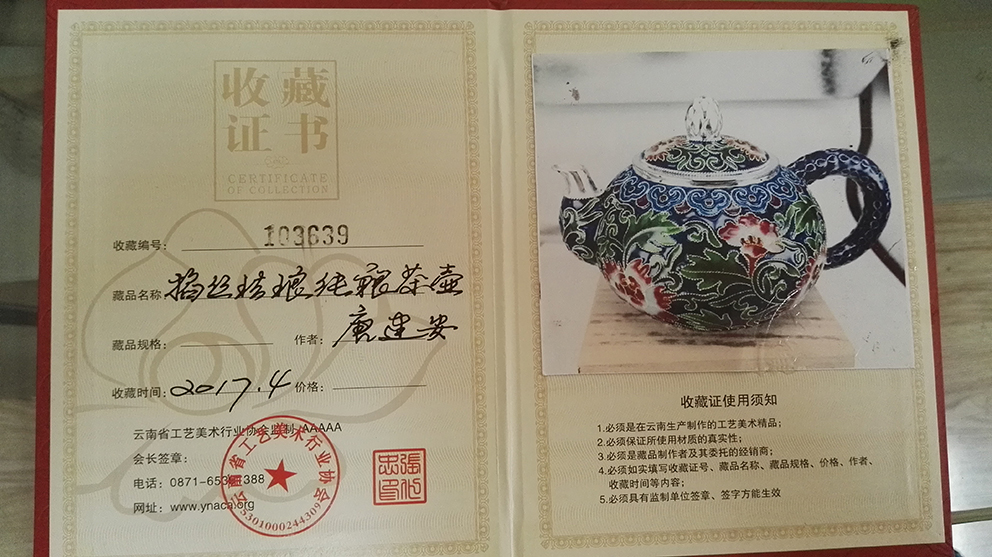 收藏
证书
CERTIFICATE
OF COLLECTION
收藏编号: 103639
藏品名称 掐丝珐琅纯银茶壶
藏品规格: 作者: 唐建安
收藏时间: 2017.4 价格:
云南省工艺美术行业协会监制 AAAAA
会长签章:
电话: 0871-65 388
网址: www.ynaca.org
云南省工艺美术行业协会
5301000244309
收藏证使用须知
1.必须是在云南生产制作的工艺美术精品;
2.必须保证所使用材质的真实性;
3.必须是藏品制作者及其委托的经销商;
4.必须如实填写收藏证号、藏品名称、藏品规格、价格、作者、
收藏时间等内容;
5.必须具有监制单位签章、签字方能生效